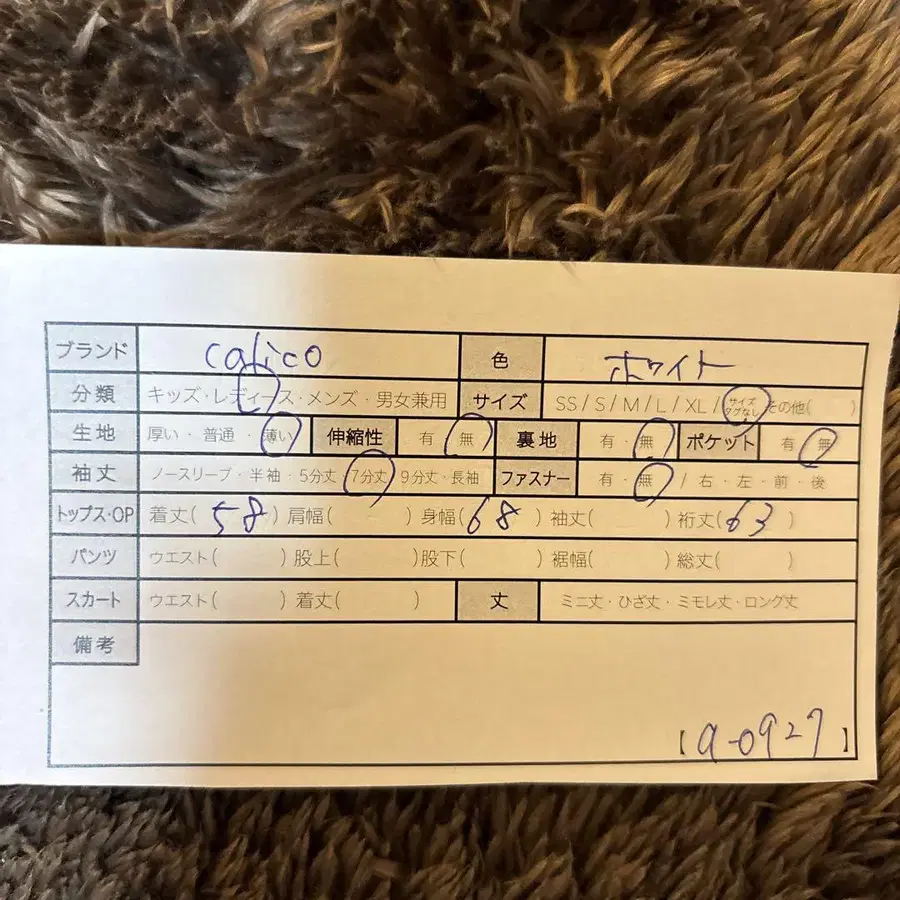 ブランド calico 色 ホワイト
分類 キッズ・レディース・メンズ・男女兼用 サイズ SS / S / M / L / XL / サイズタグなし その他( )
生地 厚い・普通・薄い 伸縮性 有・無 裏地 有・無 ポケット 有・無
袖丈 ノースリーブ・半袖・5分丈・7分丈・9分丈・長袖 ファスナー 有・無 / 右・左・前・後
トップス・OP 着丈( 58 ) 肩幅( ) 身幅( 68 ) 袖丈( ) 裄丈( 63 )
パンツ ウエスト( ) 股上( ) 股下( ) 裾幅( ) 総丈( )
スカート ウエスト( ) 着丈( ) 丈 ミニ丈・ひざ丈・ミモレ丈・ロング丈
備考
【a-0927】